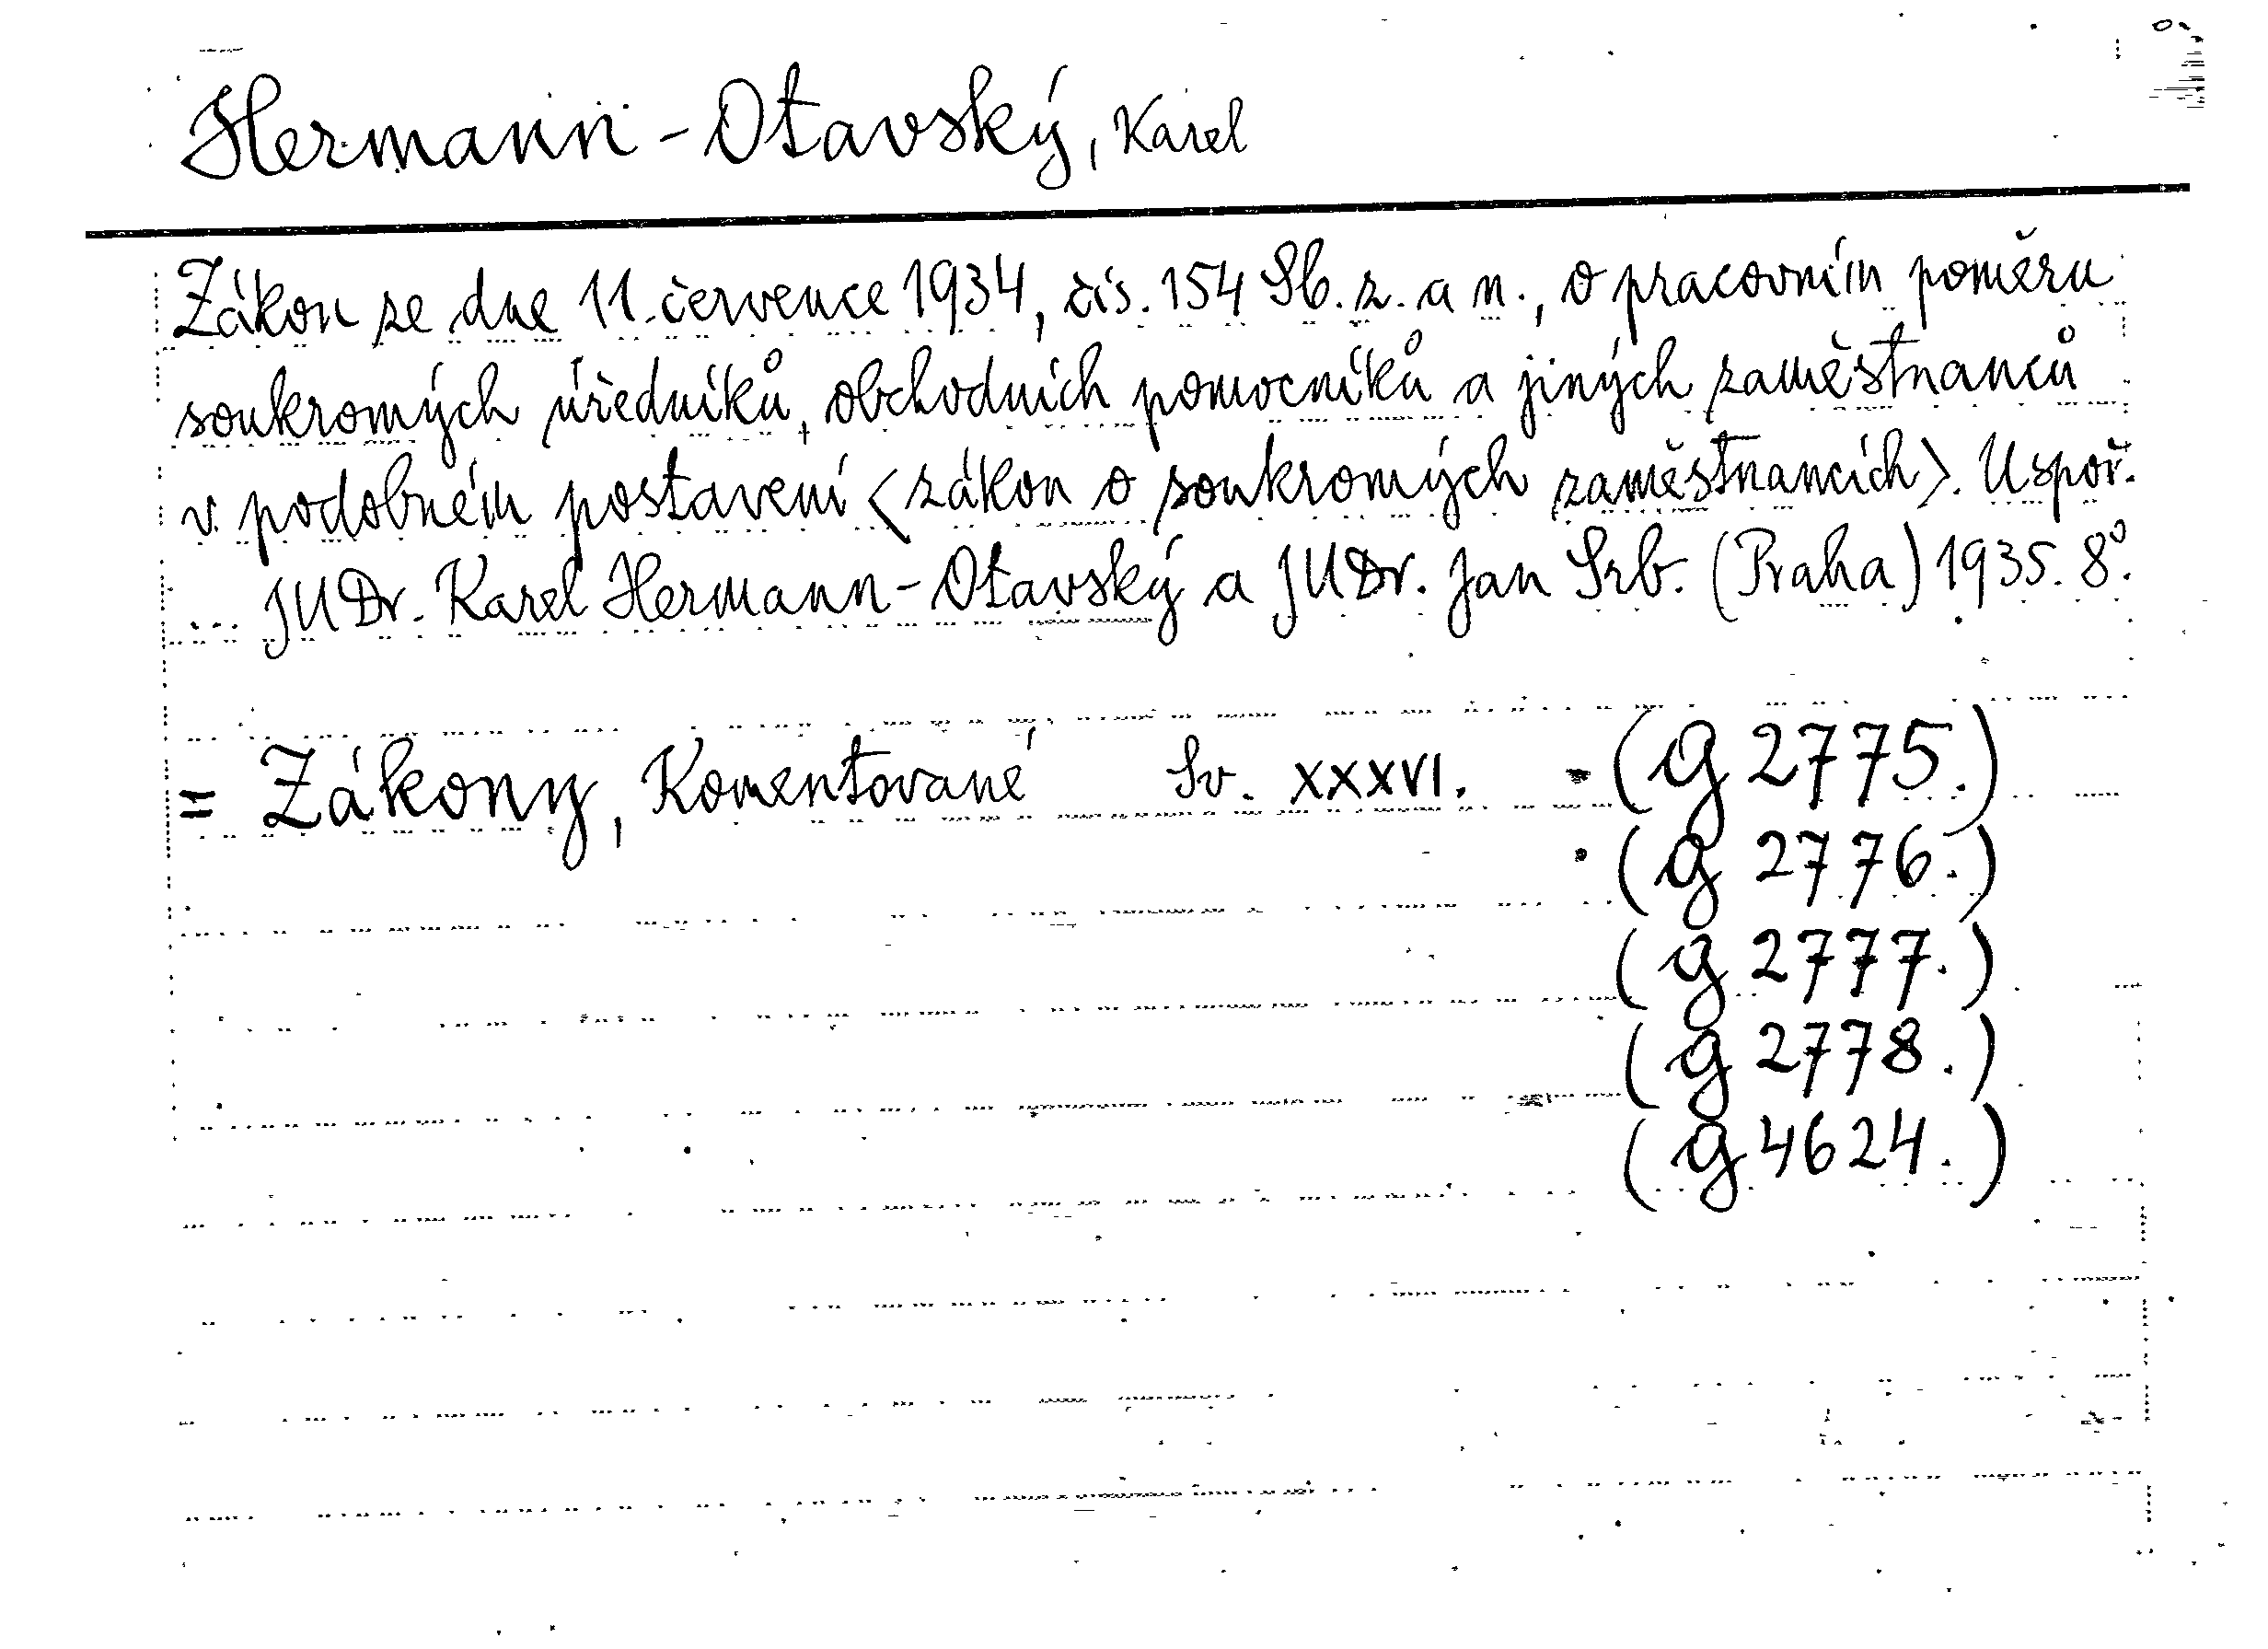 Hermann-Otavský, Karel
Zákon ze dne 11. července 1934, čís. 154 Sb. z. a n., o pracovním poměru
soukromých úředníků, obchodních pomocníků a jiných zaměstnanců
v podobném postavení <zákon o soukromých zaměstnancích>. Uspoř.
... JUDr. Karel Hermann-Otavský a JUDr. Jan Srb. (Praha) 1935. 8°.
= Zákony, Komentované Sv. XXXVI. - (G 2775.)
(g 2776.)
(g 2777.)
(g 2778.)
(g 4624.)